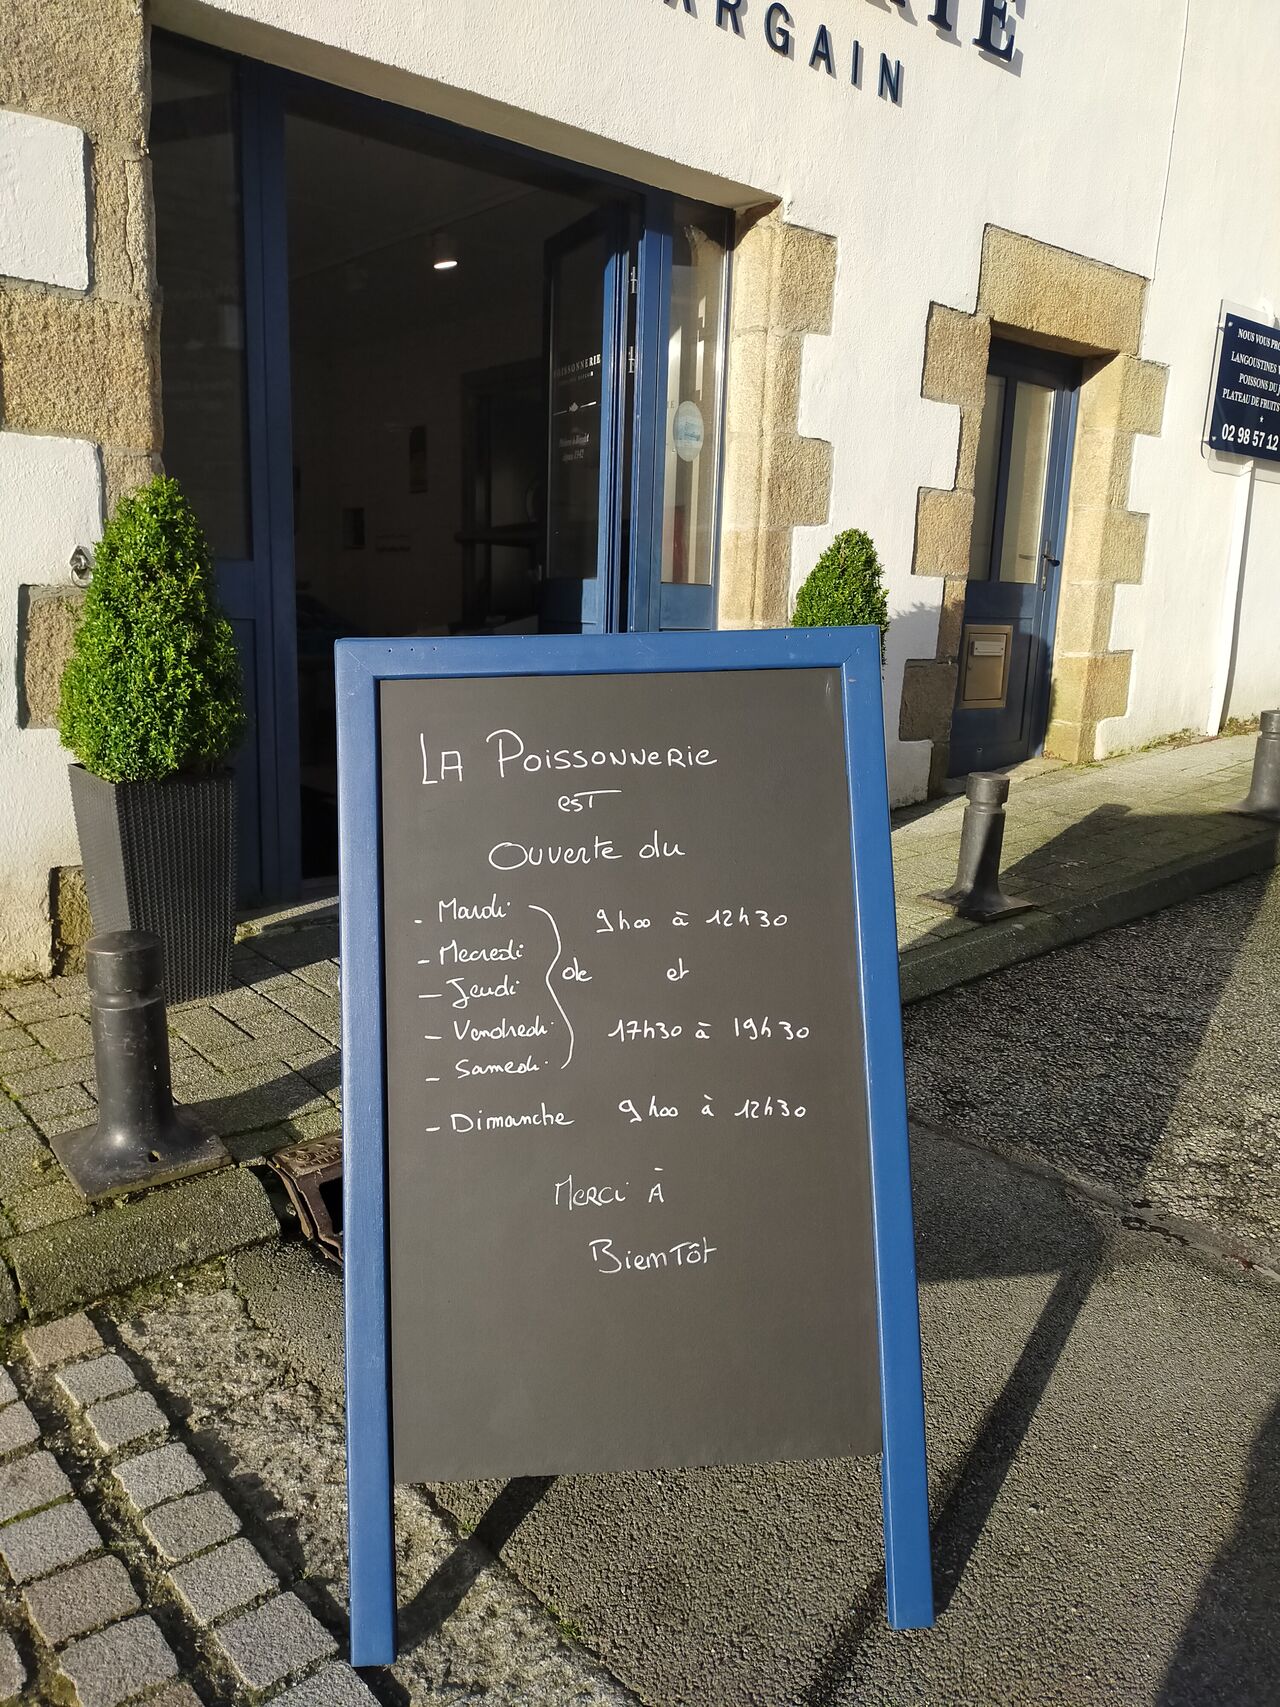 ARGAIN
POISSONNERIE
depuis 1942
NOUS VOUS
LANGOUSTINES
POISSONS DU
PLATEAU DE FRUITS
02 98 57 12
LA POISSONNERIE
EST
OUVERTE du
- Mardi
- Mecredi
- Jeudi
- Vendredi
- Samedi
de 9h00 à 12h30
et
17h30 à 19h30
- Dimanche 9h00 à 12h30
MERCI À
BIENTÔT